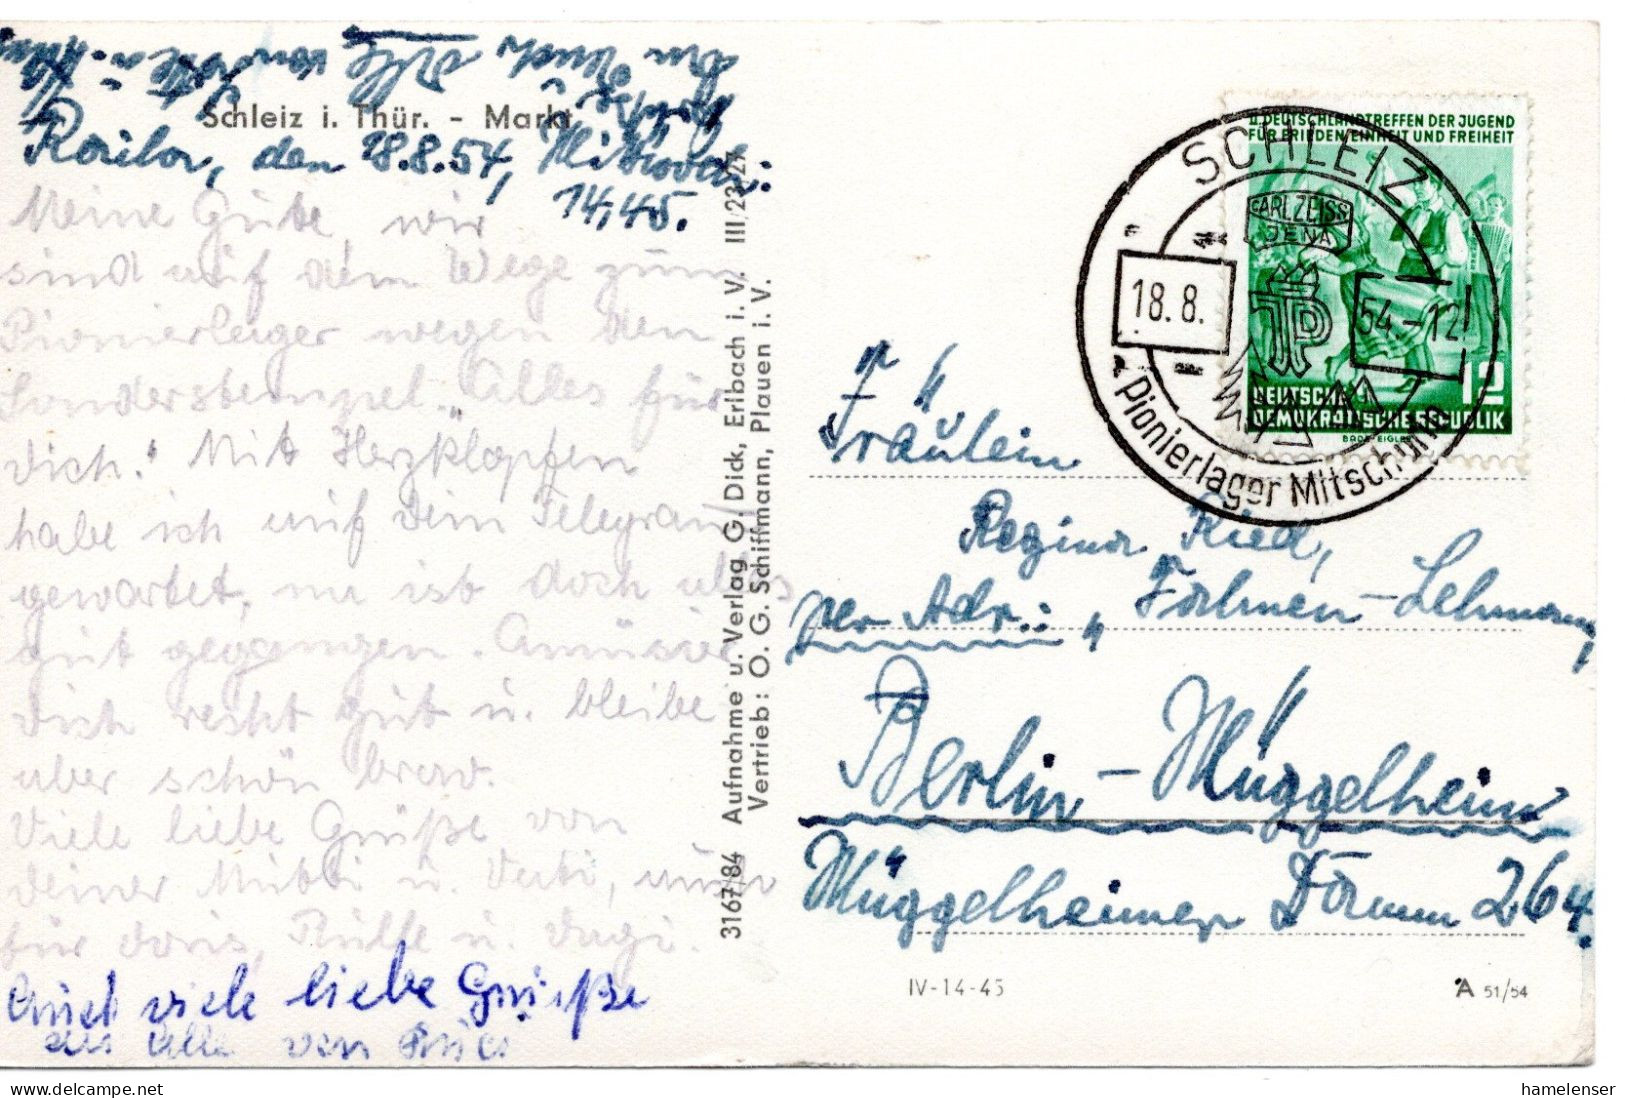 Schleiz i. Thür. - Markt
den 18.8.54,
14,45.
Meine Gute, wir
sind auf dem Wege zum
Pionierlager wegen den
Sonderstempel. Alles für
dich." Mit Herzklopfen
habe ich auf dein Telegramm
gewartet, na ist doch alles
gut gegangen. Amüsier
dich recht gut u. bleibe
aber schön brav.
Viele liebe Grüße von
deiner Mutti u. Vati,
für Doris,
Auch viele liebe Grüße
an Alle von
3167/84 Aufnahme u. Verlag G. Dick, Erlbach i. V. III/23/27
Vertrieb: O. G. Schiffmann, Plauen i. V.
II. DEUTSCHLANDTREFFEN DER JUGEND
FÜR FRIEDEN, EINHEIT UND FREIHEIT
DEUTSCHE 12
DEMOKRATISCHE REPUBLIK
BADE-EIGLER
SCHLEIZ
CARL ZEISS
JENA
JP
18.8. 54.-12
Pionierlager Mitschurin
Fräulein
Regina Ried,
per Adr.: " Fahnen-Lehmann,
Berlin-Müggelheim
Müggelheimer Damm 264.
IV-14-45
A 51/54
hamelenser
www.delcampe.net